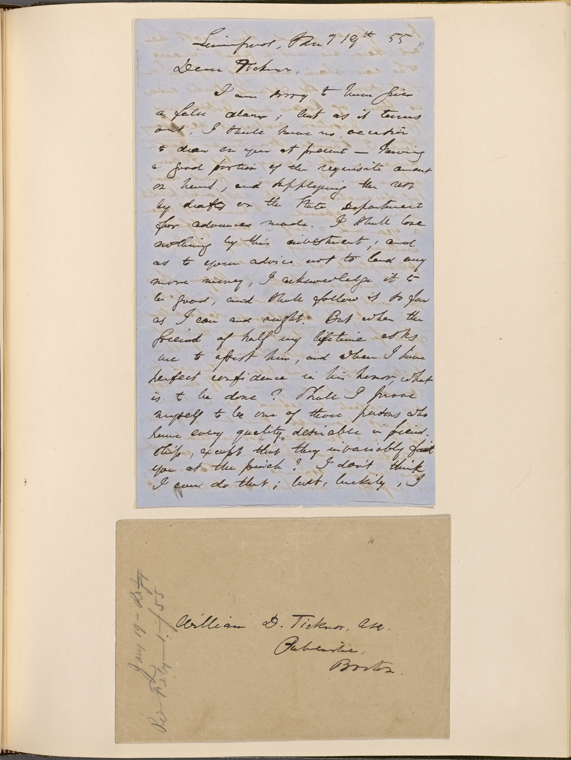 Liverpool, Jan 19th 55
Dear Ticknor,
I am sorry to have given
a false alarm; but as it turns
out, I shall have no occasion
to draw on you at present — having
a good portion of the requisite amount
on hand, and supplying the rest
by drafts on the State Department
for advances made. I shall lose
nothing by this investment; and
as to your advice not to lend any
more money, I acknowledge it to
be good, and shall follow it so far
as I can and ought. But when the
friend of half my lifetime asks
me to assist him, and when I have
perfect confidence in his honor, what
is to be done? Shall I prove
myself to be one of those persons who
have every quality desirable in friend-
ship, except that they invariably fail
you at the pinch? I don't think
I can do that; but, luckily, I
William D. Ticknor, Esq.
Publisher,
Boston.
Jany 19 -
Feby 1 - /55